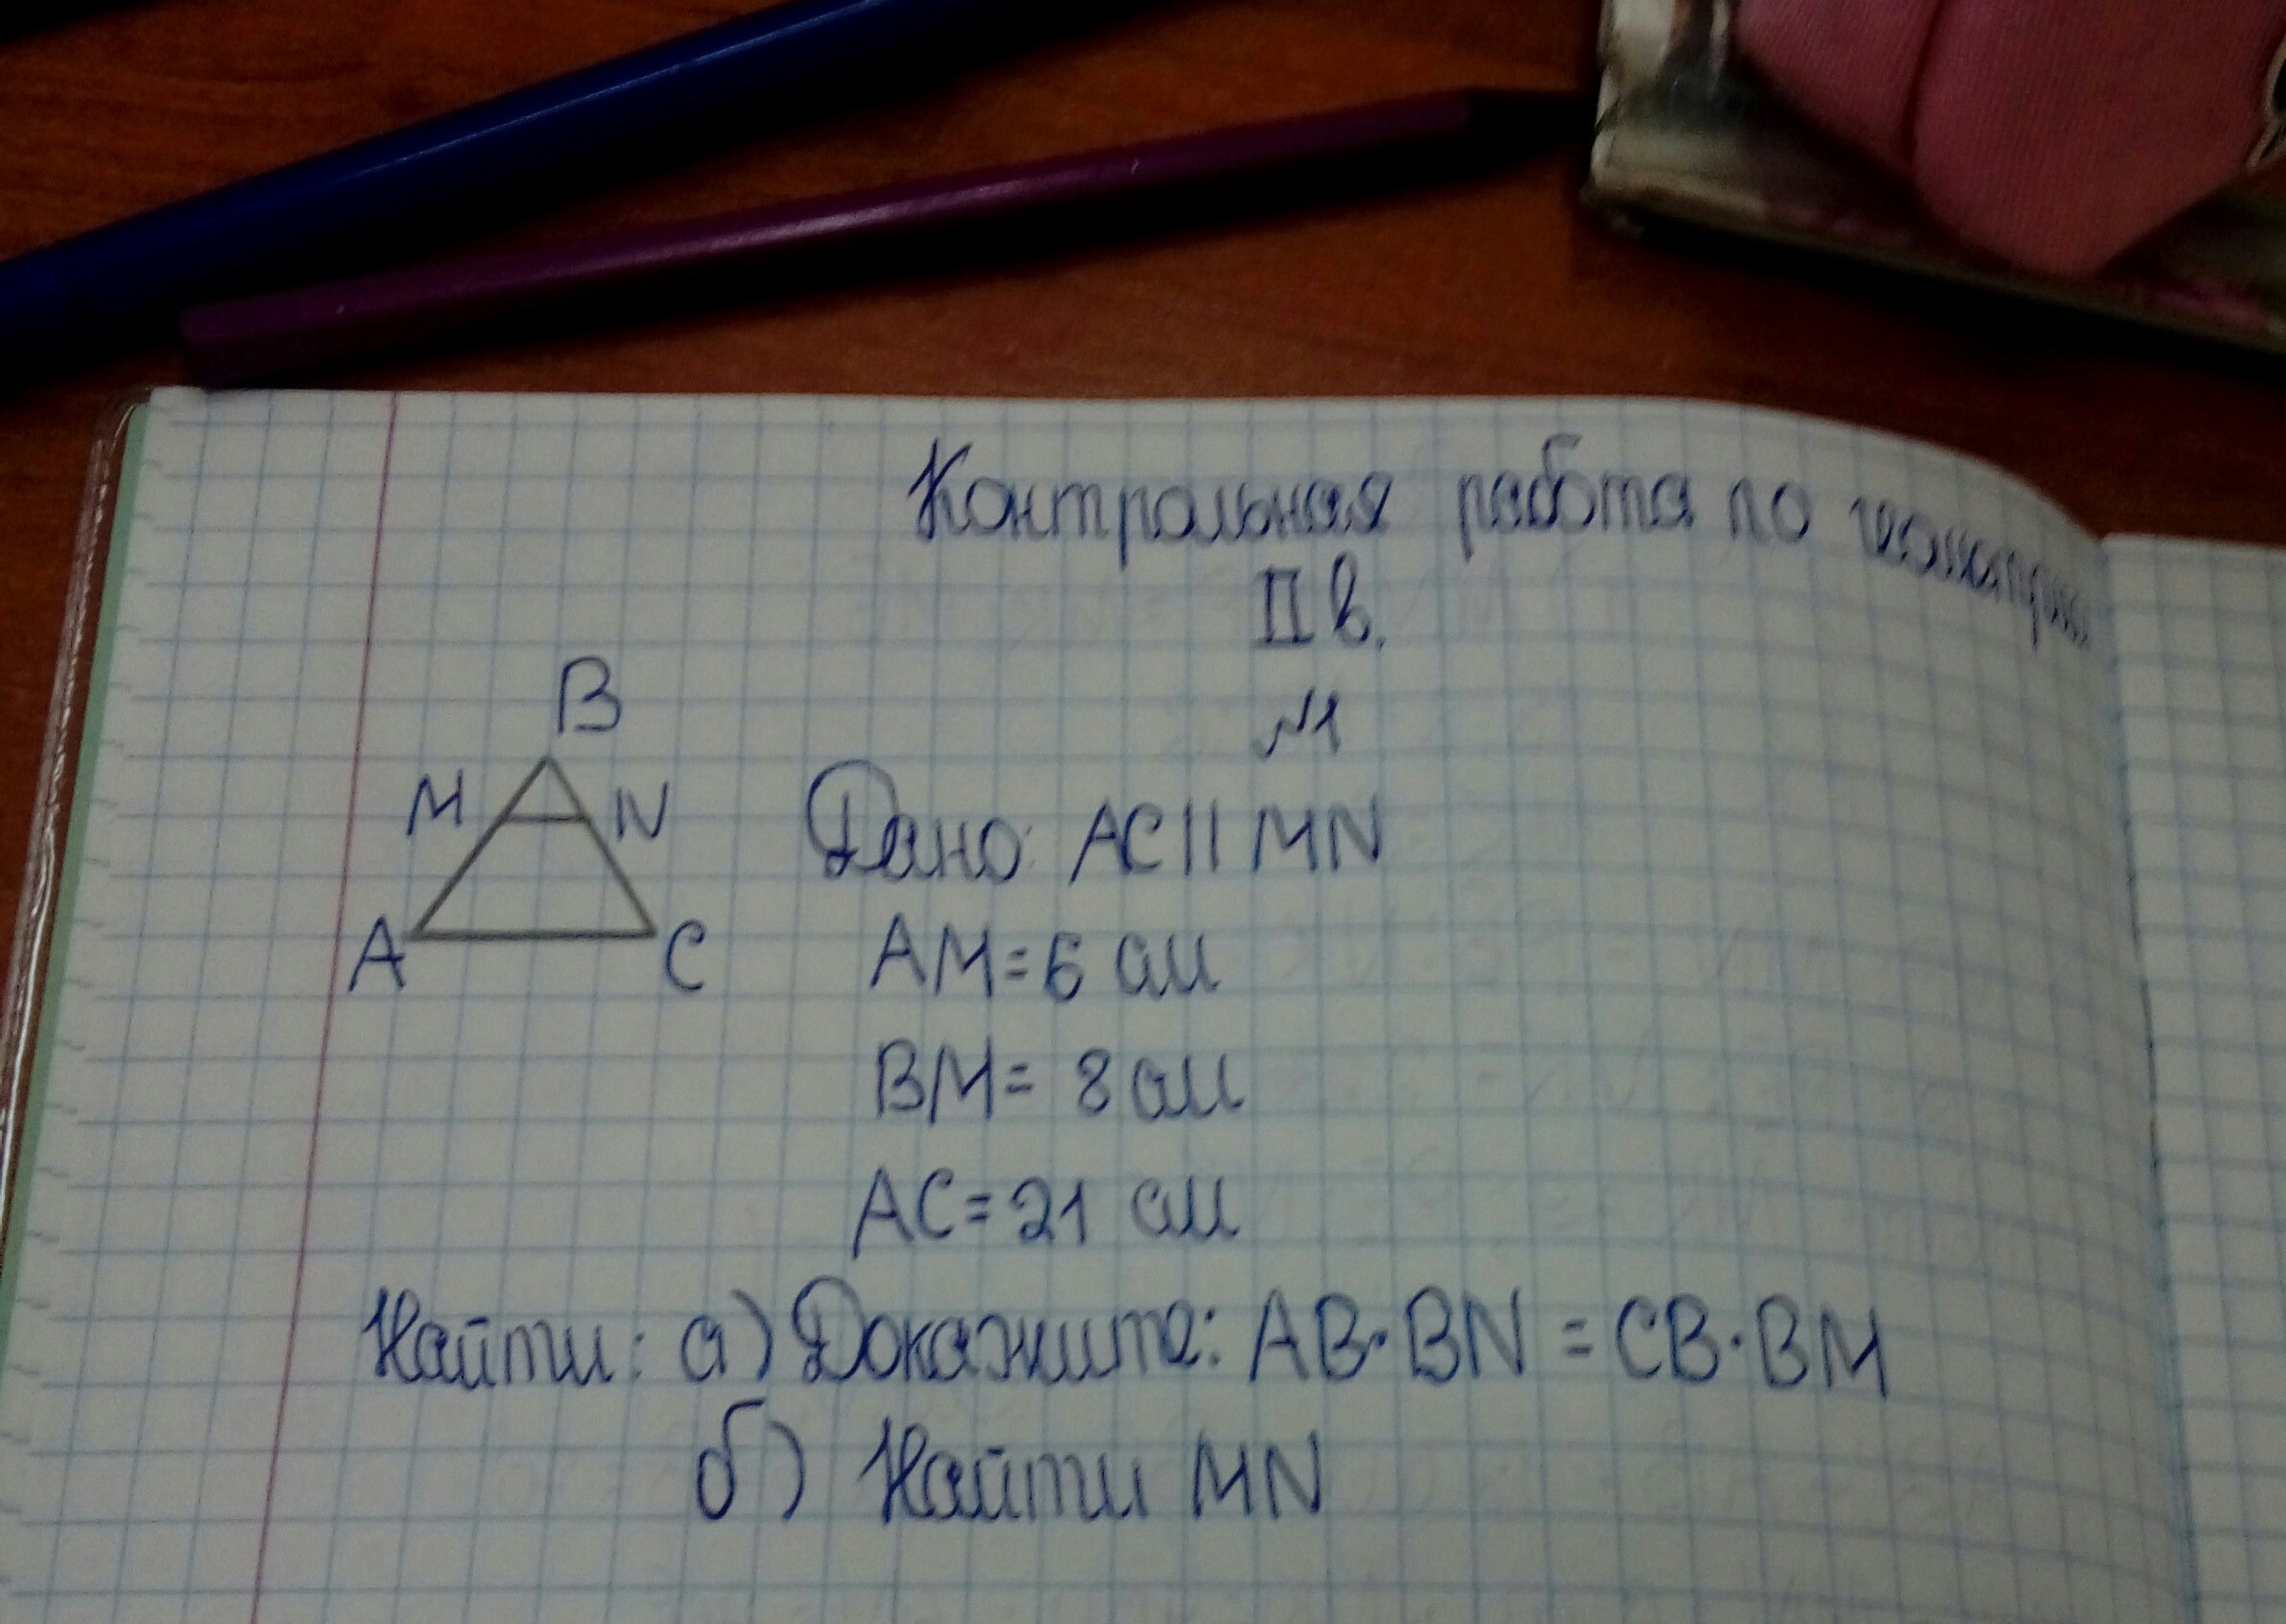 Контрольная работа по геометрии
II в.
№1
B
M N
A C
Дано: AC || MN
AM = 6 см
BM = 8 см
AC = 21 см
Найти: а) Докажите: AB · BN = CB · BM
б) Найти MN